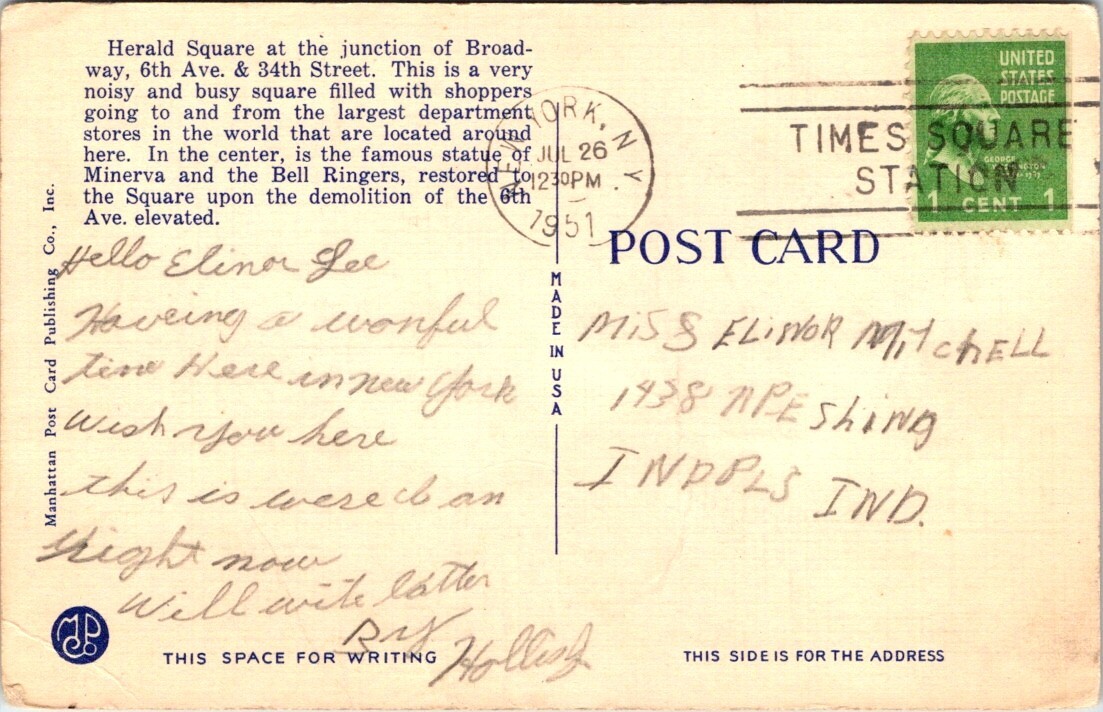 Herald Square at the junction of Broad-
way, 6th Ave. & 34th Street. This is a very
noisy and busy square filled with shoppers
going to and from the largest department
stores in the world that are located around
here. In the center, is the famous statue of
Minerva and the Bell Ringers, restored to
the Square upon the demolition of the 6th
Ave. elevated.
Manhattan Post Card Publishing Co., Inc.
Hello Elinor Lee
Haveing a wonful
time Here in new York
Wish you here
this is were I an
Hight now
Will write latter
By Hollis
MPC
THIS SPACE FOR WRITING
NEW YORK, N Y
JUL 26
1230PM
1951
TIMES SQUARE
STATION
UNITED
STATES
POSTAGE
GEORGE
WASHINGTON
1 CENT 1
POST CARD
MADE IN USA
MISS ELINOR MITCHELL
1438 N PEShING
INDPLS IND.
THIS SIDE IS FOR THE ADDRESS